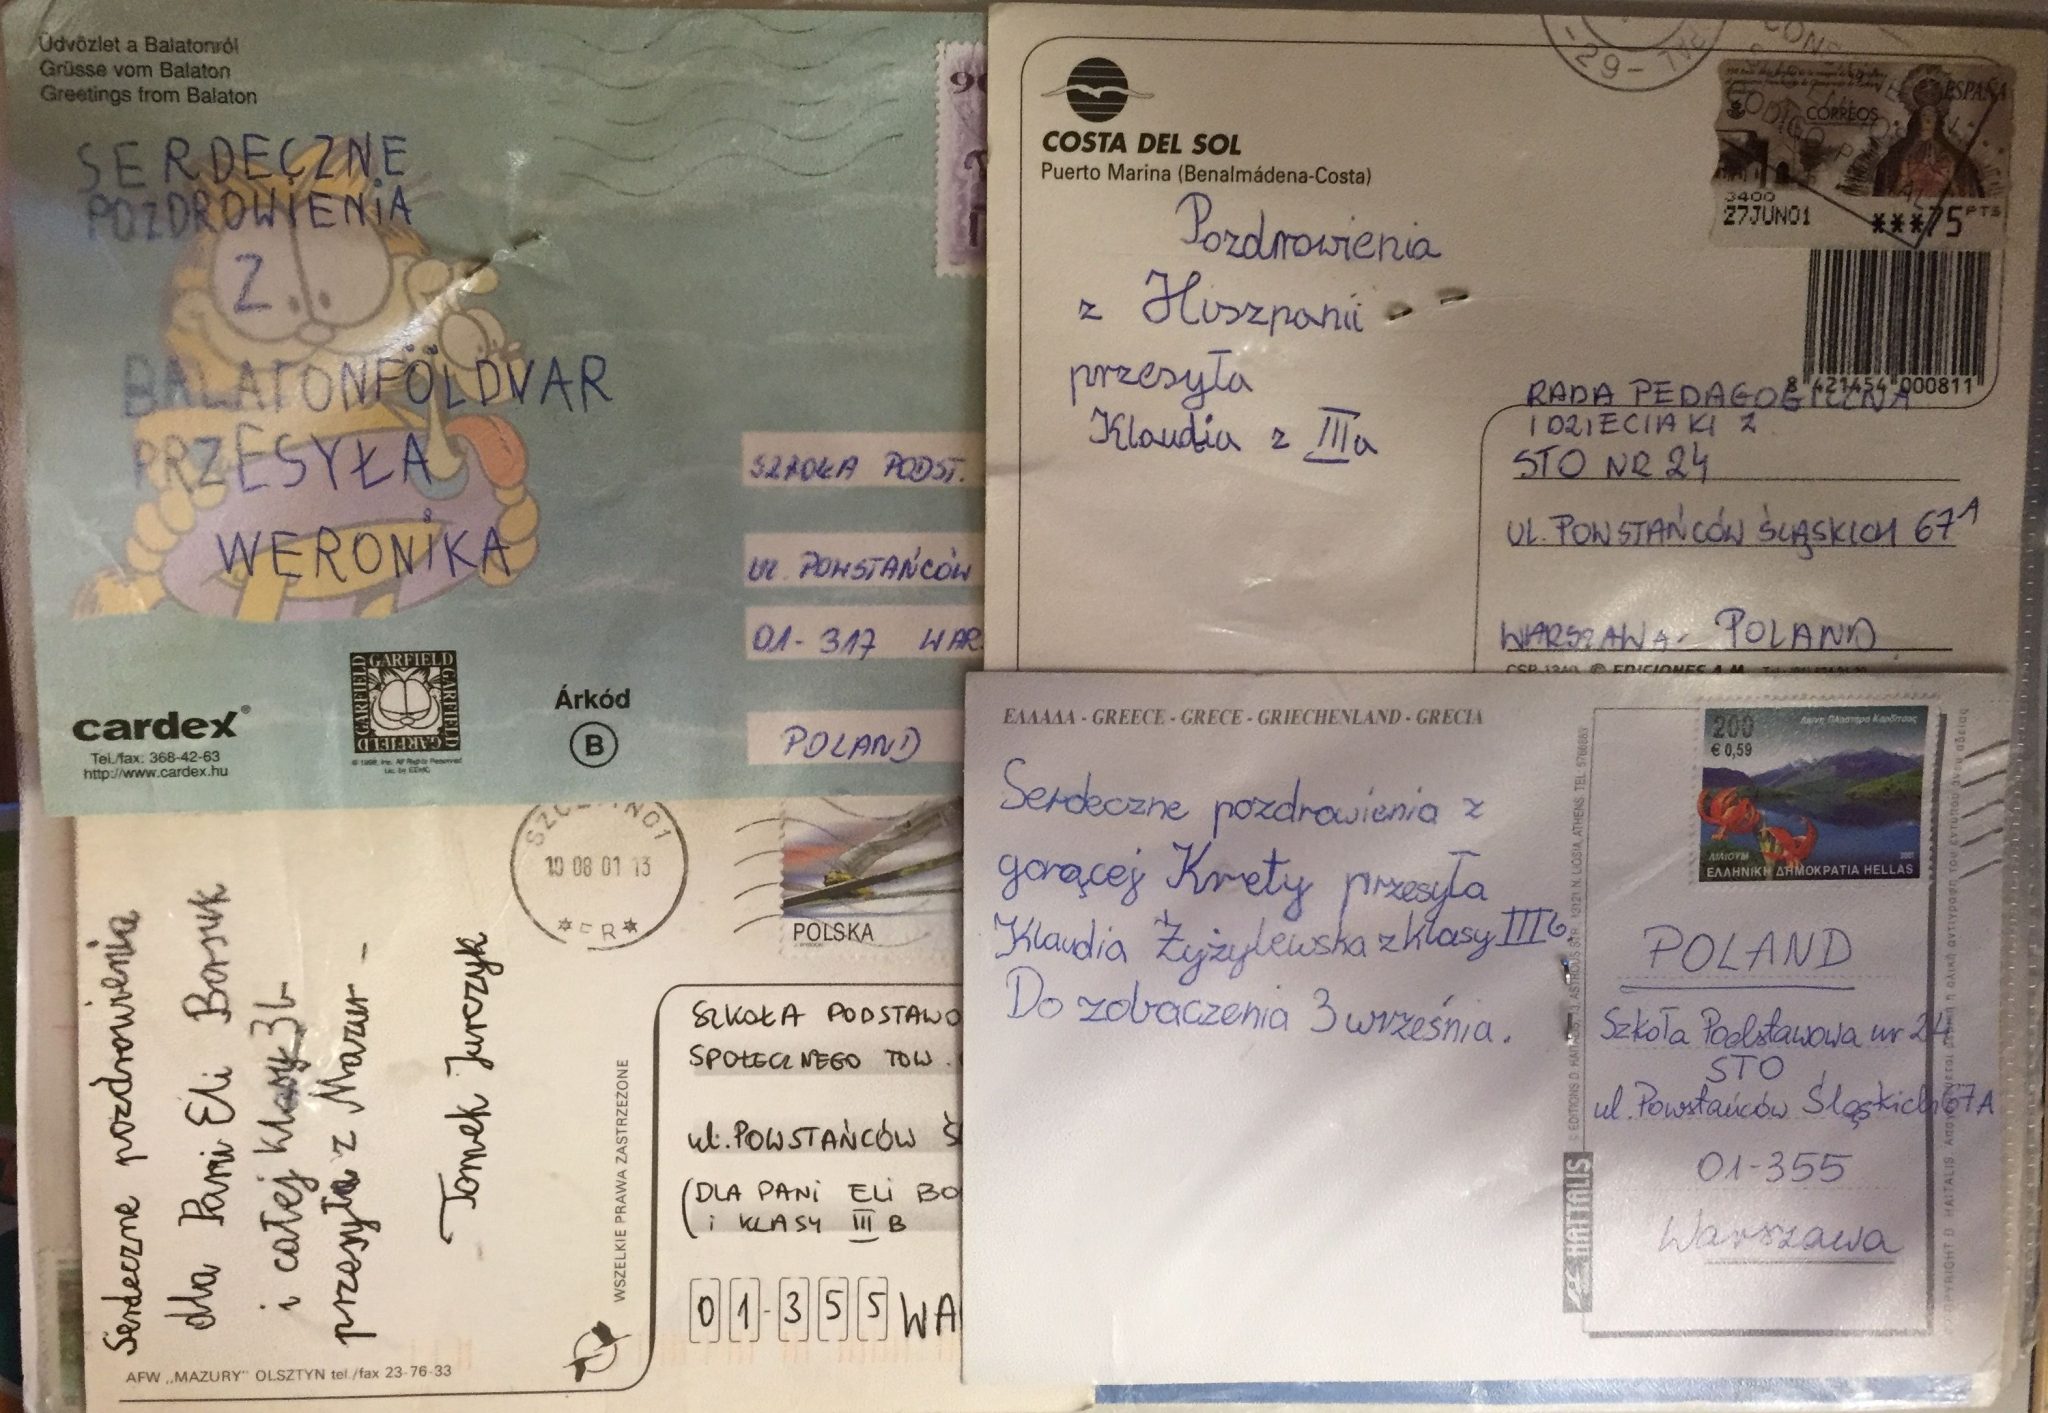 Üdvözlet a Balatonról
Grüsse vom Balaton
Greetings from Balaton
SERDECZNE
POZDROWIENIA
Z
BALATONFÖLDVAR
PRZESYŁA
WERONIKA
SZKOŁA PODST.
UL. POWSTAŃCÓW
01-317 WAR
POLAND
cardex®
Tel./fax: 368-42-63
http://www.cardex.hu
GARFIELD
GARFIELD
GARFIELD
GARFIELD
Árkód
B
COSTA DEL SOL
Puerto Marina (Benalmádena-Costa)
Pozdrowienia
z Hiszpanii
przesyła
Klaudia z IIIa
ESPAÑA
CORREOS
3400
27JUN01 ***75 PTS
8 421454 000811
RADA PEDAGOGICZNA
I DZIECIAKI Z
STO NR 24
UL. POWSTAŃCÓW ŚLĄSKICH 67A
WARSZAWA - POLAND
10 08 01 13
POLSKA
Serdeczne pozdrowienia
dla Pani Eli Borsuk
i całej klasy 3b
przesyła z Mazur -
Tomek Jurczyk
WSZELKIE PRAWA ZASTRZEŻONE
SZKOŁA PODSTAWO
SPOŁECZNEGO TOW.
UL. POWSTAŃCÓW Ś
(DLA PANI ELI BO
I KLASY III B
01-355 WA
AFW „MAZURY" OLSZTYN tel./fax 23-76-33
ΕΛΛΑΔΑ - GREECE - GRECE - GRIECHENLAND - GRECIA
Serdeczne pozdrowienia z
gorącej Krety przesyła
Klaudia Żyżylewska z klasy IIIb.
Do zobaczenia 3 września.
200
€ 0,59
Λίμνη Πλαστήρα Καρδίτσας
ΛΙΛΙΟΥΜ
2001
ΕΛΛΗΝΙΚΗ ΔΗΜΟΚΡΑΤΙΑ HELLAS
HAITALIS
POLAND
Szkoła Podstawowa nr 24
STO
ul. Powstańców Śląskich 67A
01-355
Warszawa